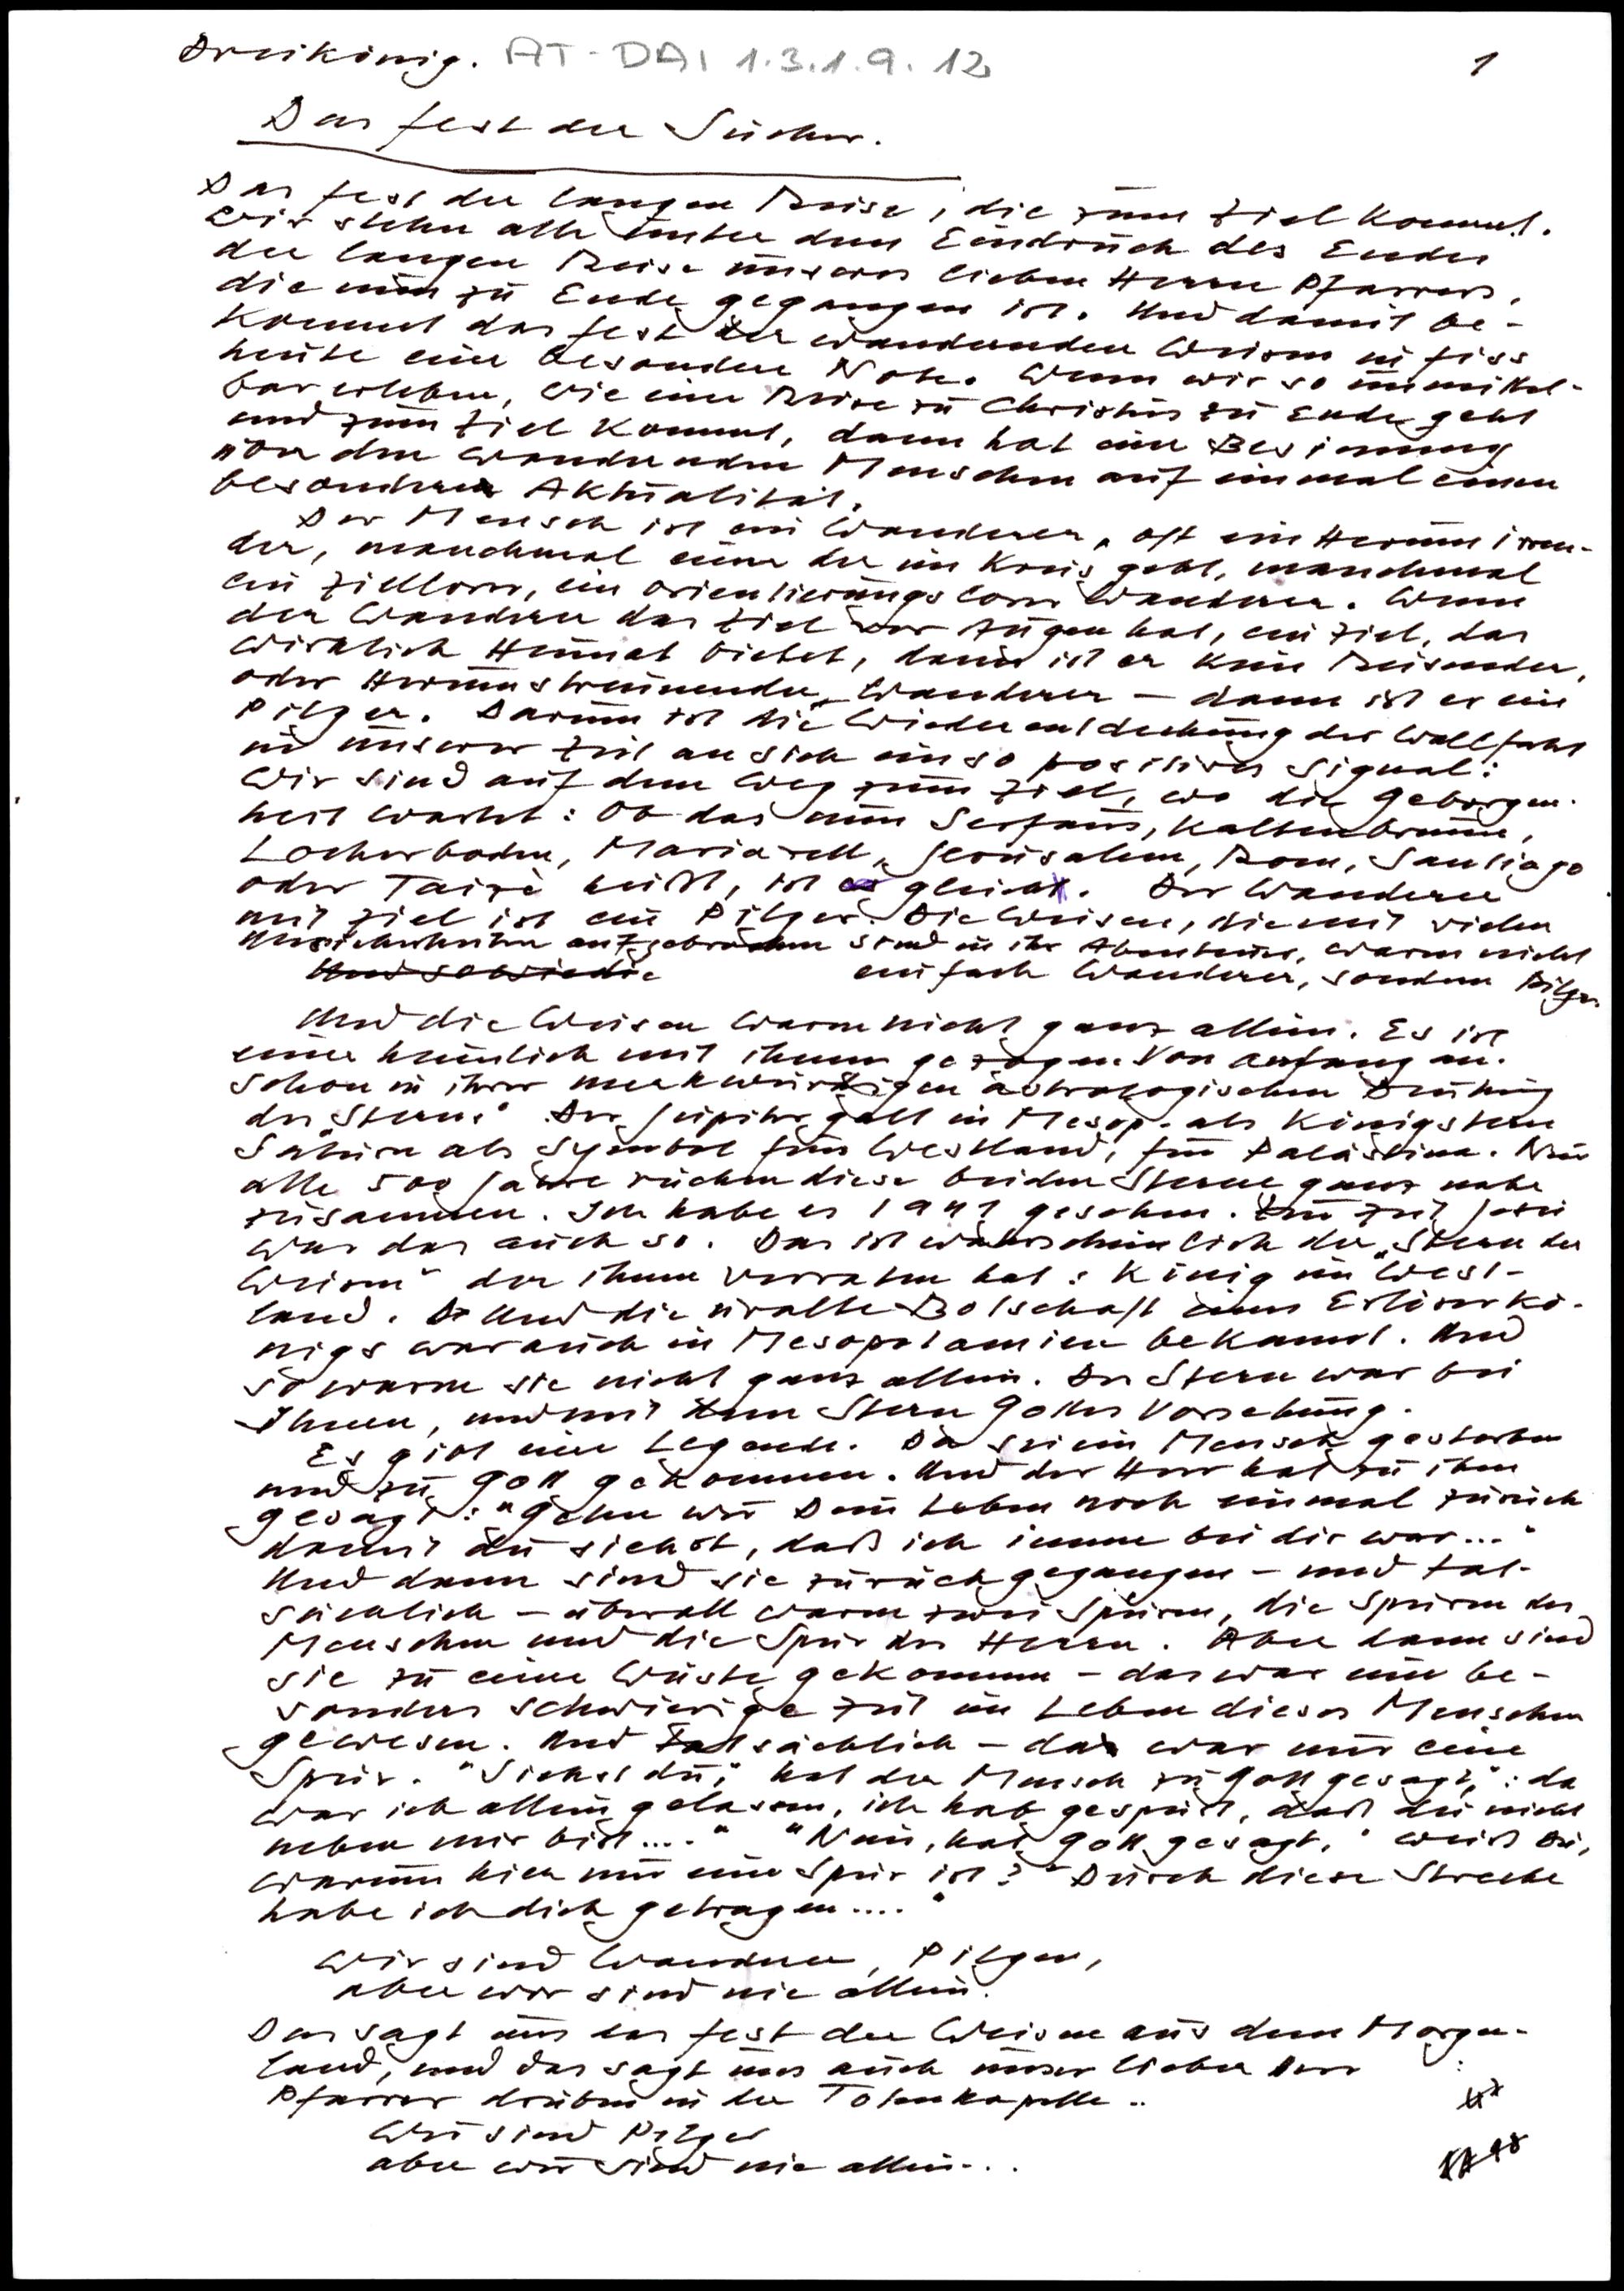 Dreikönig. AT-DAI 1.3.1.9.12 1
Das Fest der Sucher.
Das Fest der langen Reise, die zum Ziel kommt.
Wir stehn alle unter dem Eindruck des Endes
der langen Reise unseres lieben Herrn Pfarrers,
die nun zu Ende gegangen ist. Und damit be-
kommt das Fest der wandernden Weisen in Fiss
heute eine besondere Note. Wenn wir so unmittel-
bar erleben, wie eine Reise zu Christus zu Ende geht
und zum Ziel kommt, dann hat eine Besinnung
von dem wandernden Menschen auf einmal einen
besondere Aktualität.
Der Mensch ist ein Wanderer, oft ein Herumirren-
der, manchmal einer der im Kreis geht, manchmal
ein zielloser, ein orientierungsloser Wanderer. Wenn
der Wanderer das Ziel vor Augen hat, ein Ziel, das
wirklich Heimat bietet, dann ist er kein Reisender,
oder Herumstreunender Wanderer – dann ist er ein
Pilger. Darum ist die Wiederentdeckung der Wallfahrt
in unserer Zeit an sich ein so positives Signal:
Wir sind auf dem Weg zum Ziel, wo die Geborgen-
heit wartet: Ob das nun Serfaus, Kaltenbrunn,
Locherboden, Mariazell, Jerusalem, Rom, Santiago
oder Taizè heißt, ist gleich. Der Wanderer
mit Ziel ist ein Pilger. Die Weisen, die mit vielen
Unsicherheiten aufgebrochen sind in ihr Abenteuer, waren nicht
Und so wie die einfach Wanderer, sondern Pilger
Und die Weisen waren nicht ganz allein. Es ist
einer heimlich mit ihnen gezogen von Anfang an.
Schon in ihrer merkwürdigen astrologischen Deutung
des Sterns. Der Jupiter galt in Mesop. als Königstern
Saturn als Symbol fürs Westland, für Palästina. Nur
alle 500 Jahre rücken diese beiden Sterne ganz nahe
zusammen. Ich habe es 1941 gesehen. Zur Zeit Jesu
war das auch so. Das ist wahrscheinlich der „Stern der
Weisen" der ihnen verraten hat: König im West-
land. Und die uralte Botschaft eines Erlöserkö-
nigs war auch in Mesopotamien bekannt. Und
so waren sie nicht ganz allein. Der Stern war bei
Ihnen, und mit dem Stern Gottes Vorsehung.
Es gibt eine Legende. Da sei ein Mensch gestorben
und zu Gott gekommen. Und der Herr hat zu ihm
gesagt: "Gehn wir Dein Leben noch einmal zurück
damit du siehst, daß ich immer bei dir war..."
Und dann sind sie zurückgegangen – und tat-
sächlich – überall waren zwei Spuren, die Spuren des
Menschen und die Spur des Herrn. Aber dann sind
sie zu einer Wüste gekommen – das war eine be-
sonders schwierige Zeit im Leben dieses Menschen
gewesen. Und tatsächlich – da war nur eine
Spur. "Siehst du," hat der Mensch zu Gott gesagt,": da
war ich allein gelassen, ich hab gespürt, daß du nicht
neben mir bist...." "Nein, hat Gott gesagt, " weißt Du,
warum hier nur eine Spur ist? "Durch diese Strecke
habe ich dich getragen...."
Wir sind Wanderer, Pilger,
aber wir sind nie allein.
Das sagt uns das Fest der Weisen aus dem Morgen-
land, und das sagt uns auch unser lieber Herr
Pfarrer drüben in der Totenkapelle..
Wir sind Pilger
aber wir sind nie allein...